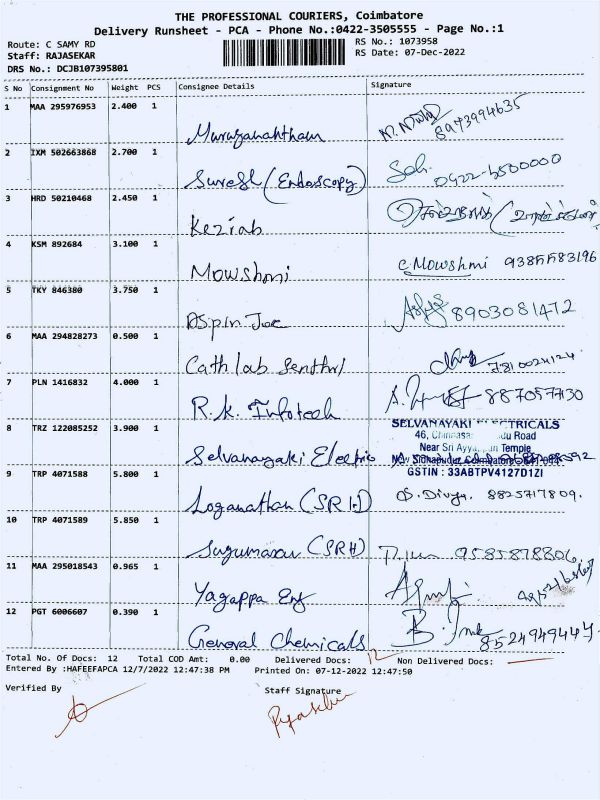 THE PROFESSIONAL COURIERS, Coimbatore
Delivery Runsheet - PCA - Phone No.:0422-3505555 - Page No.:1
Route: C SAMY RD RS No.: 1073958
Staff: RAJASEKAR RS Date: 07-Dec-2022
DRS No.: DCJB107395801
S No Consignment No Weight PCS Consignee Details Signature
1 MAA 295976953 2.400 1
Muruganahtham 8973994635
2 IXM 502663868 2.700 1
Suresh (Endoscopy) 0422-4500000
3 HRD 50210468 2.450 1
Keziah
4 KSM 892684 3.100 1
Mowshmi C Mowshmi 9385583196
5 TKY 846380 3.750 1
Aspin Joe 8903081472
6 MAA 294828273 0.500 1
Cath lab Senthil 7810024124
7 PLN 1416832 4.000 1
R.K. Infotech 8870577130
8 TRZ 122085252 3.900 1
Selvanayaki Electric
SELVANAYAKI
46, Road
Near Sri Temple
GSTIN : 33ABTPV4127D1ZI
9 TRP 4071588 5.800 1
Loganathan (SRH) Divya. 8825717809.
10 TRP 4071589 5.850 1
Sugumaran (SRH) 9585878806
11 MAA 295018543 0.965 1
Yagappa Eng
12 PGT 6006607 0.390 1
General Chemicals 8524949444
Total No. Of Docs: 12 Total COD Amt: 0.00 Delivered Docs: 12 Non Delivered Docs:
Entered By :HAFEEFAPCA 12/7/2022 12:47:38 PM Printed On: 07-12-2022 12:47:50
Verified By Staff Signature